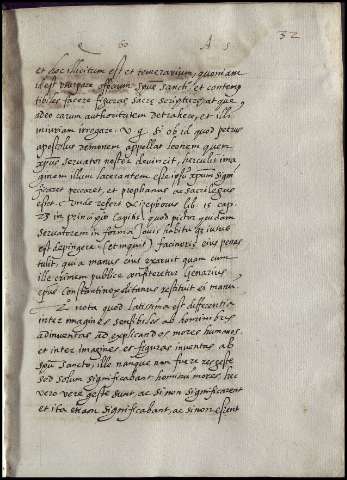 60 A s 32
et hoc illicitum est et temerarium, quoniam
id est usurpare officium spūs sancti, et contemp
tibiles facere figuras sacre scripturę, atque
adeo earum authoritatem detrahere, et illi
iniuriam irrogare. v. g. si ob id quod petrus
apostolus demonem appellat leonem quem
xp̄us servator noster devincit, herculis ima
ginem illum lacerantem esse ipsū xp̄um signi
ficaret peccaret, et prophanus ac sacrilegus
esset. Unde refert nicephorus lib. 15 cap.
23 in principio capitis, quod pictor quidam
servatorem in forma Iouis habitu
est depingere facinoris eius penas
tulit, quia manus eius exaruit quam cum
ille crimen publice confiteretur Genadius
epūs Constantinopolitanus restituit ei manū.
2º nota quod latissima est differentia
inter imagines sensibiles ab hominibus
adinventas ad explicandos mores humanos,
et inter imagines et figuras inventas ab
spū sancto, ille nanque non fuere res gestę
sed solum significabant hominū mores, hec
vero vere gestę sunt, ac si non significarent
et ita etiam significabant, ac si non essent